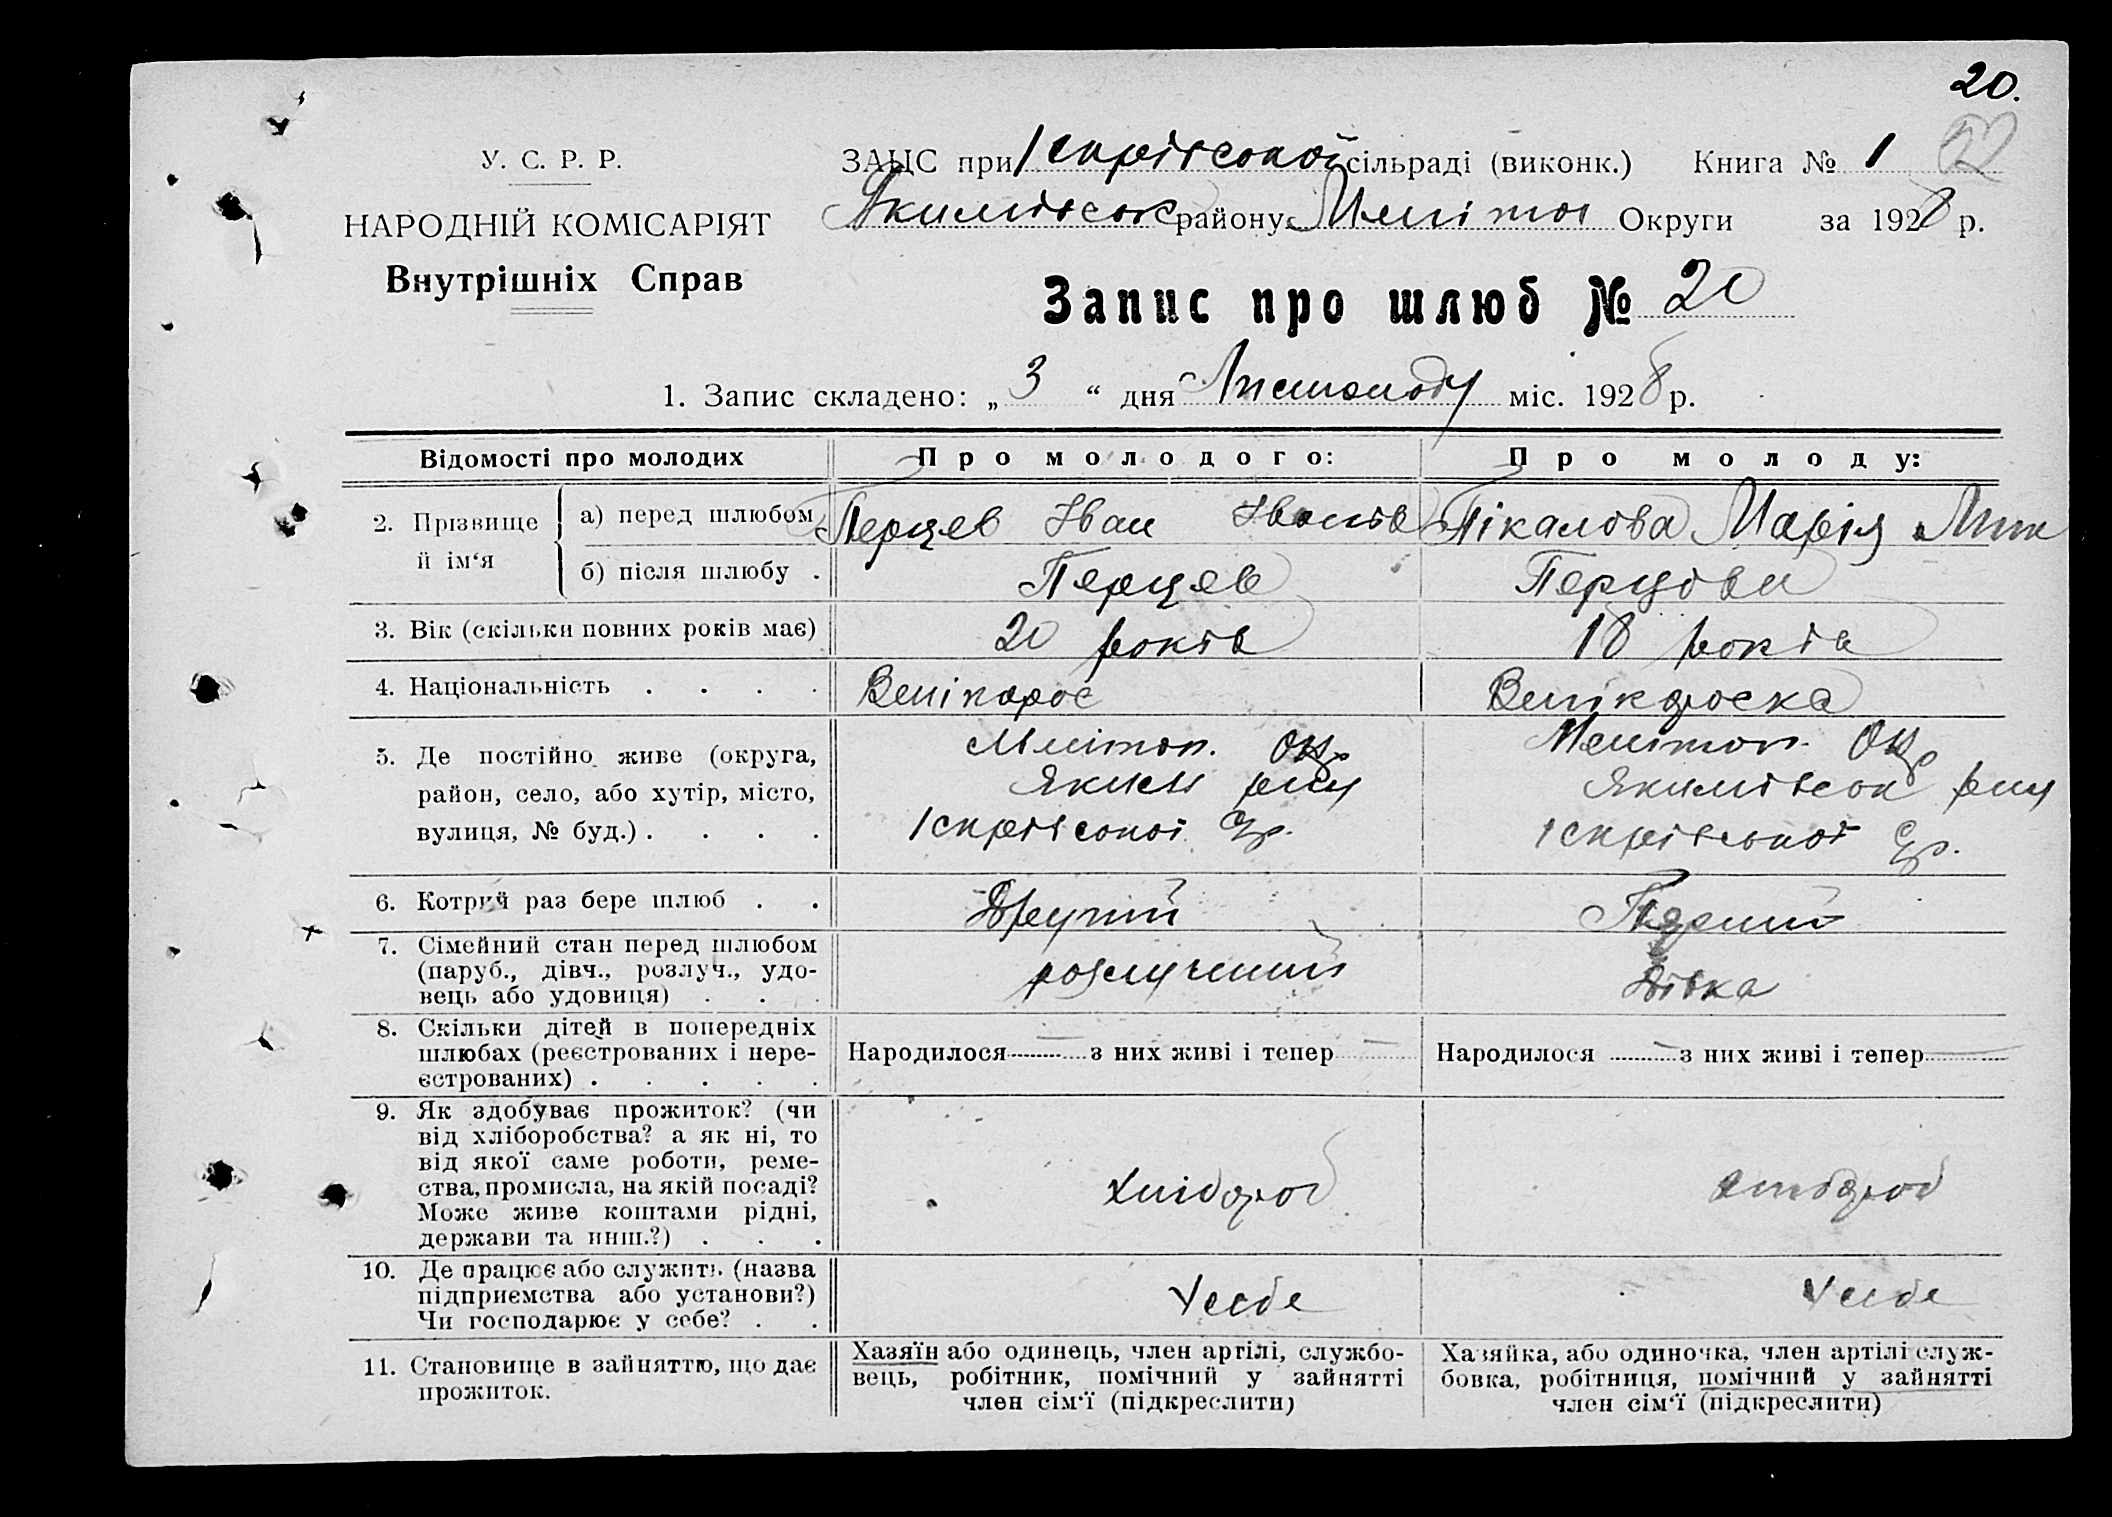 20.
52
У. С. Р. Р.
НАРОДНІЙ КОМІСАРІЯТ
Внутрішніх Справ
ЗАЦС при Іскрівської сільраді (виконк.) Книга № 1
Якимівськ району Меліт Округи за 1928 р.
Запис про шлюб № 20
1. Запис складено: „ 3 “ дня Листопаду міс. 1928 р.
Відомості про молодих
Про молодого:
Про молоду:
2. Прізвище й ім‘я
а) перед шлюбом
Перцев Іван Іванів
Пікалова Марія
б) після шлюбу .
Перцев
Перцова
3. Вік (скільки повних років має)
20 років
18 років
4. Національність . . . .
Велікорос
Велікороска
5. Де постійно живе (округа,
район, село, або хутір, місто,
вулиця, № буд.) . . . .
Мелітоп. Окр
Яким рну
Іскрівської Ср.
Мелитоп. Окр
Якимівськ рну
Іскрівської Ср.
6. Котрий раз бере шлюб . .
Другий
Перший
7. Сімейний стан перед шлюбом
(паруб., дівч., розлуч., удо-
вець або удовиця) . . .
розлучений
Дівка
8. Скільки дітей в попередніх
шлюбах (реєстрованих і нере-
єстрованих) . . . . .
Народилося — з них живі і тепер —
Народилося — з них живі і тепер —
9. Як здобуває прожиток? (чи
від хліборобства? а як ні, то
від якої саме роботи, реме-
ства, промисла, на якій посаді?
Може живе коштами рідні,
держави та инш.?) . . .
хлібороб
хлібороб
10. Де працює або служить (назва
підприємства або установи?)
Чи господарює у себе? . .
У себе
У себе
11. Становище в зайняттю, що дає
прожиток.
Хазяїн або одинець, член аргілі, службо-
вець, робітник, помічний у зайнятті
член сім‘ї (підкреслити)
Хазяйка, або одиночка, член артілі служ-
бовка, робітниця, помічний у зайнятті
член сім‘ї (підкреслити)